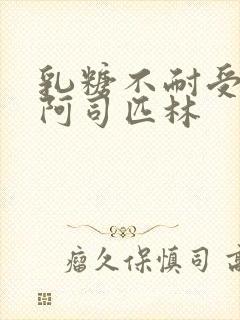 乳糖不耐受
阿司匹林
瘤久保慎司 高